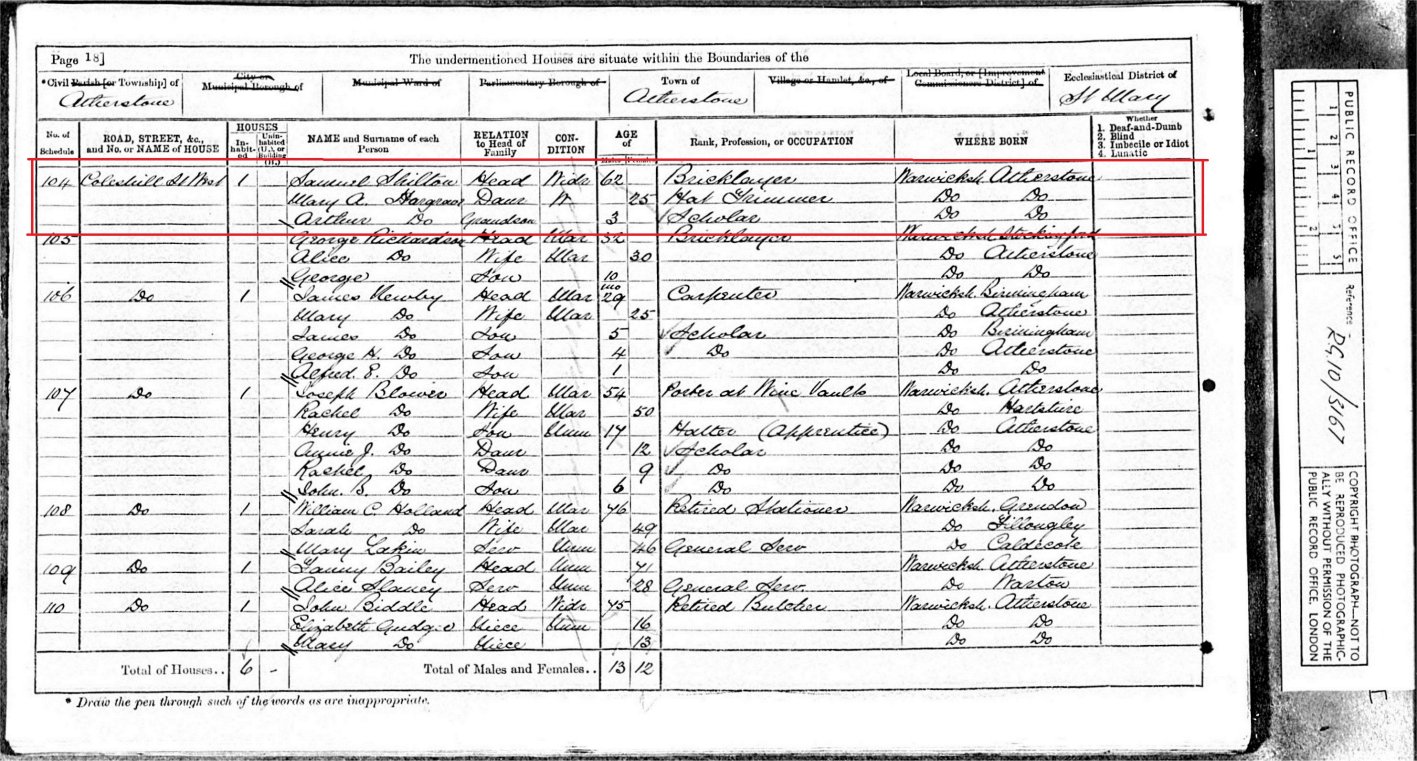 Page 18]
The undermentioned Houses are situate within the Boundaries of the
*Civil Parish [or Township] of
Atherstone
City or Municipal Borough of
Municipal Ward of
Parliamentary Borough of
Town of
Atherstone
Village or Hamlet, &c., of
Local Board, or [Improvement Commissioners District] of
Ecclesiastical District of
St Mary
No. of Schedule
ROAD, STREET, &c., and No. or NAME of HOUSE
HOUSES
In-habit-ed
Unin-habited (U.), or Building (B.)
NAME and Surname of each Person
RELATION to Head of Family
CON-DITION
AGE of
Males
Females
Rank, Profession, or OCCUPATION
WHERE BORN
Whether
1. Deaf-and-Dumb
2. Blind
3. Imbecile or Idiot
4. Lunatic
104 Coleshill St West 1 Samuel Shilton Head Widr 62 Bricklayer Warwicksh. Atherstone
Mary A. Hargrave Daur W 25 Hat Trimmer Do Do
Arthur Do Grandson 3 Scholar Do Do
105 George Richardson Head Mar 32 Bricklayer Warwicksh Stockingford
Alice Do Wife Mar 30 Do Atherstone
George Son 10 mo Do Do
106 Do 1 James Newby Head Mar 29 Carpenter Warwicksh. Birmingham
Mary Do Wife Mar 25 Do Atherstone
James Do Son 5 Scholar Do Birmingham
George H. Do Son 4 Do Do Atherstone
Alfred. E. Do Son 1 Do Do
107 Do 1 Joseph Blower Head Mar 54 Porter at Wine Vaults Warwicksh. Atherstone
Rachel Do Wife Mar 50 Do Hartshire
Henry Do Son Unm 17 Hatter (Apprentice) Do Atherstone
Annie J. Do Daur 12 Scholar Do Do
Rachel Do Daur 9 Do Do Do
John. B. Do Son 6 Do Do Do
108 Do 1 William C. Holland Head Mar 76 Retired Stationer Warwicksh. Grendon
Sarah Do Wife Mar 49 Do Fillongley
Mary Lakin Serv Unm 46 General Serv Do Caldecote
109 Do 1 Fanny Bailey Head Unm 71 Warwicksh Atherstone
Alice Slaney Serv Unm 28 General Serv Do Warton
110 Do 1 John Biddle Head Widr 75 Retired Butcher Warwicksh. Atherstone
Elizabeth Niece Unm 16 Do Do
Mary Do Niece 13 Do Do
Total of Houses.. 6 - Total of Males and Females.. 13 12
* Draw the pen through such of the words as are inappropriate.
PUBLIC RECORD OFFICE
1 2 3 4 5
1 2
Reference
RG 10/3167
COPYRIGHT PHOTOGRAPH—NOT TO
BE REPRODUCED PHOTOGRAPHIC-
ALLY WITHOUT PERMISSION OF THE
PUBLIC RECORD OFFICE, LONDON